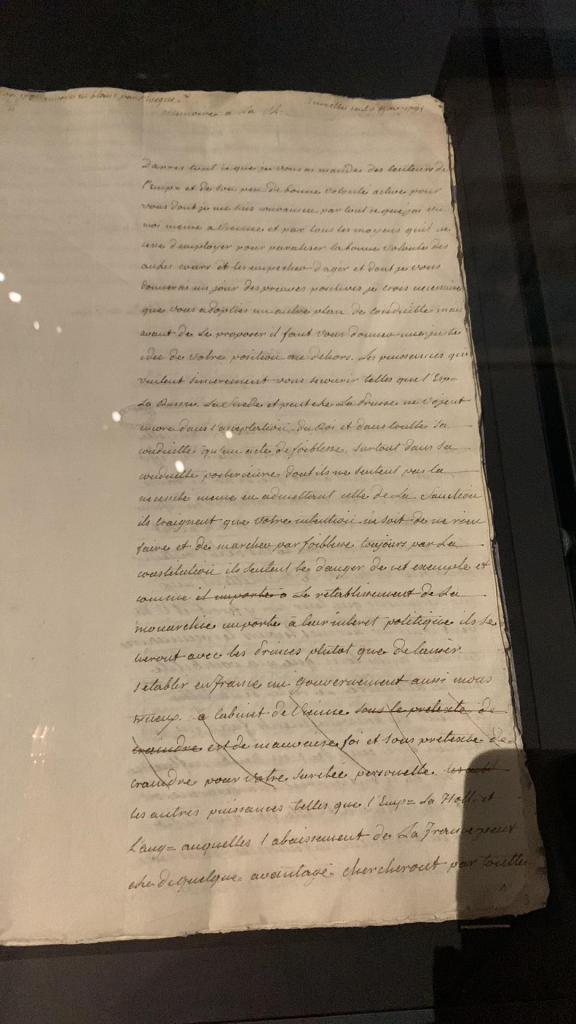 mémoire a la R.
Dapres tout ce que je vous ai mandée des lenteurs de
l'Emp= et de son peu de bonne volonté active pour
vous dont je me suis convaincu par tout ce que j'ai vu
moi meme a Vienne et par tous les moyens qu'il ne
cesse d'employer pour paraliser la bonne volonté des
autres cours et les empecher d'agir et dont je vous
donnerai un jour des preuves positives je crois necessaire
que vous adoptiés un autre plan de conduite mais
avant de le proposer il faut vous donner une juste
idée de votre position au dehors. Les puissances qui
veulent sincerement vous secourir telles que l'Esp=
La Russie La Suede et peut etre La Prusse ne voyent
encore dans l'acceptation du Roi et dans toutte sa
conduitte qu'un acte de foiblesse, surtout dans sa
conduitte posterieure dont ils ne sentent pas la
necessité meme en admettant celle de la Sanction
ils craignent que votre intention ne soit de ne rien
faire et de marcher par foiblesse toujours par La
constitution ils sentent le danger de cet exemple et
comme il importe a le retablissement de La
monarchie importe a leur interet politique ils se
seront avec les Princes plutot que de laisser
s'etablir en France un Gouvernement aussi mons
trueux. a labinet de Vienne sous le pretexte de
craindre est de mauvaise foi et sous pretexte de
craindre pour votre sureté personelle
les autres puissances telles que l'Emp= La Holl= et
L'ang= auxquelles l'abaissement de La France peut
etre de quelque avantage chercheront par toutte